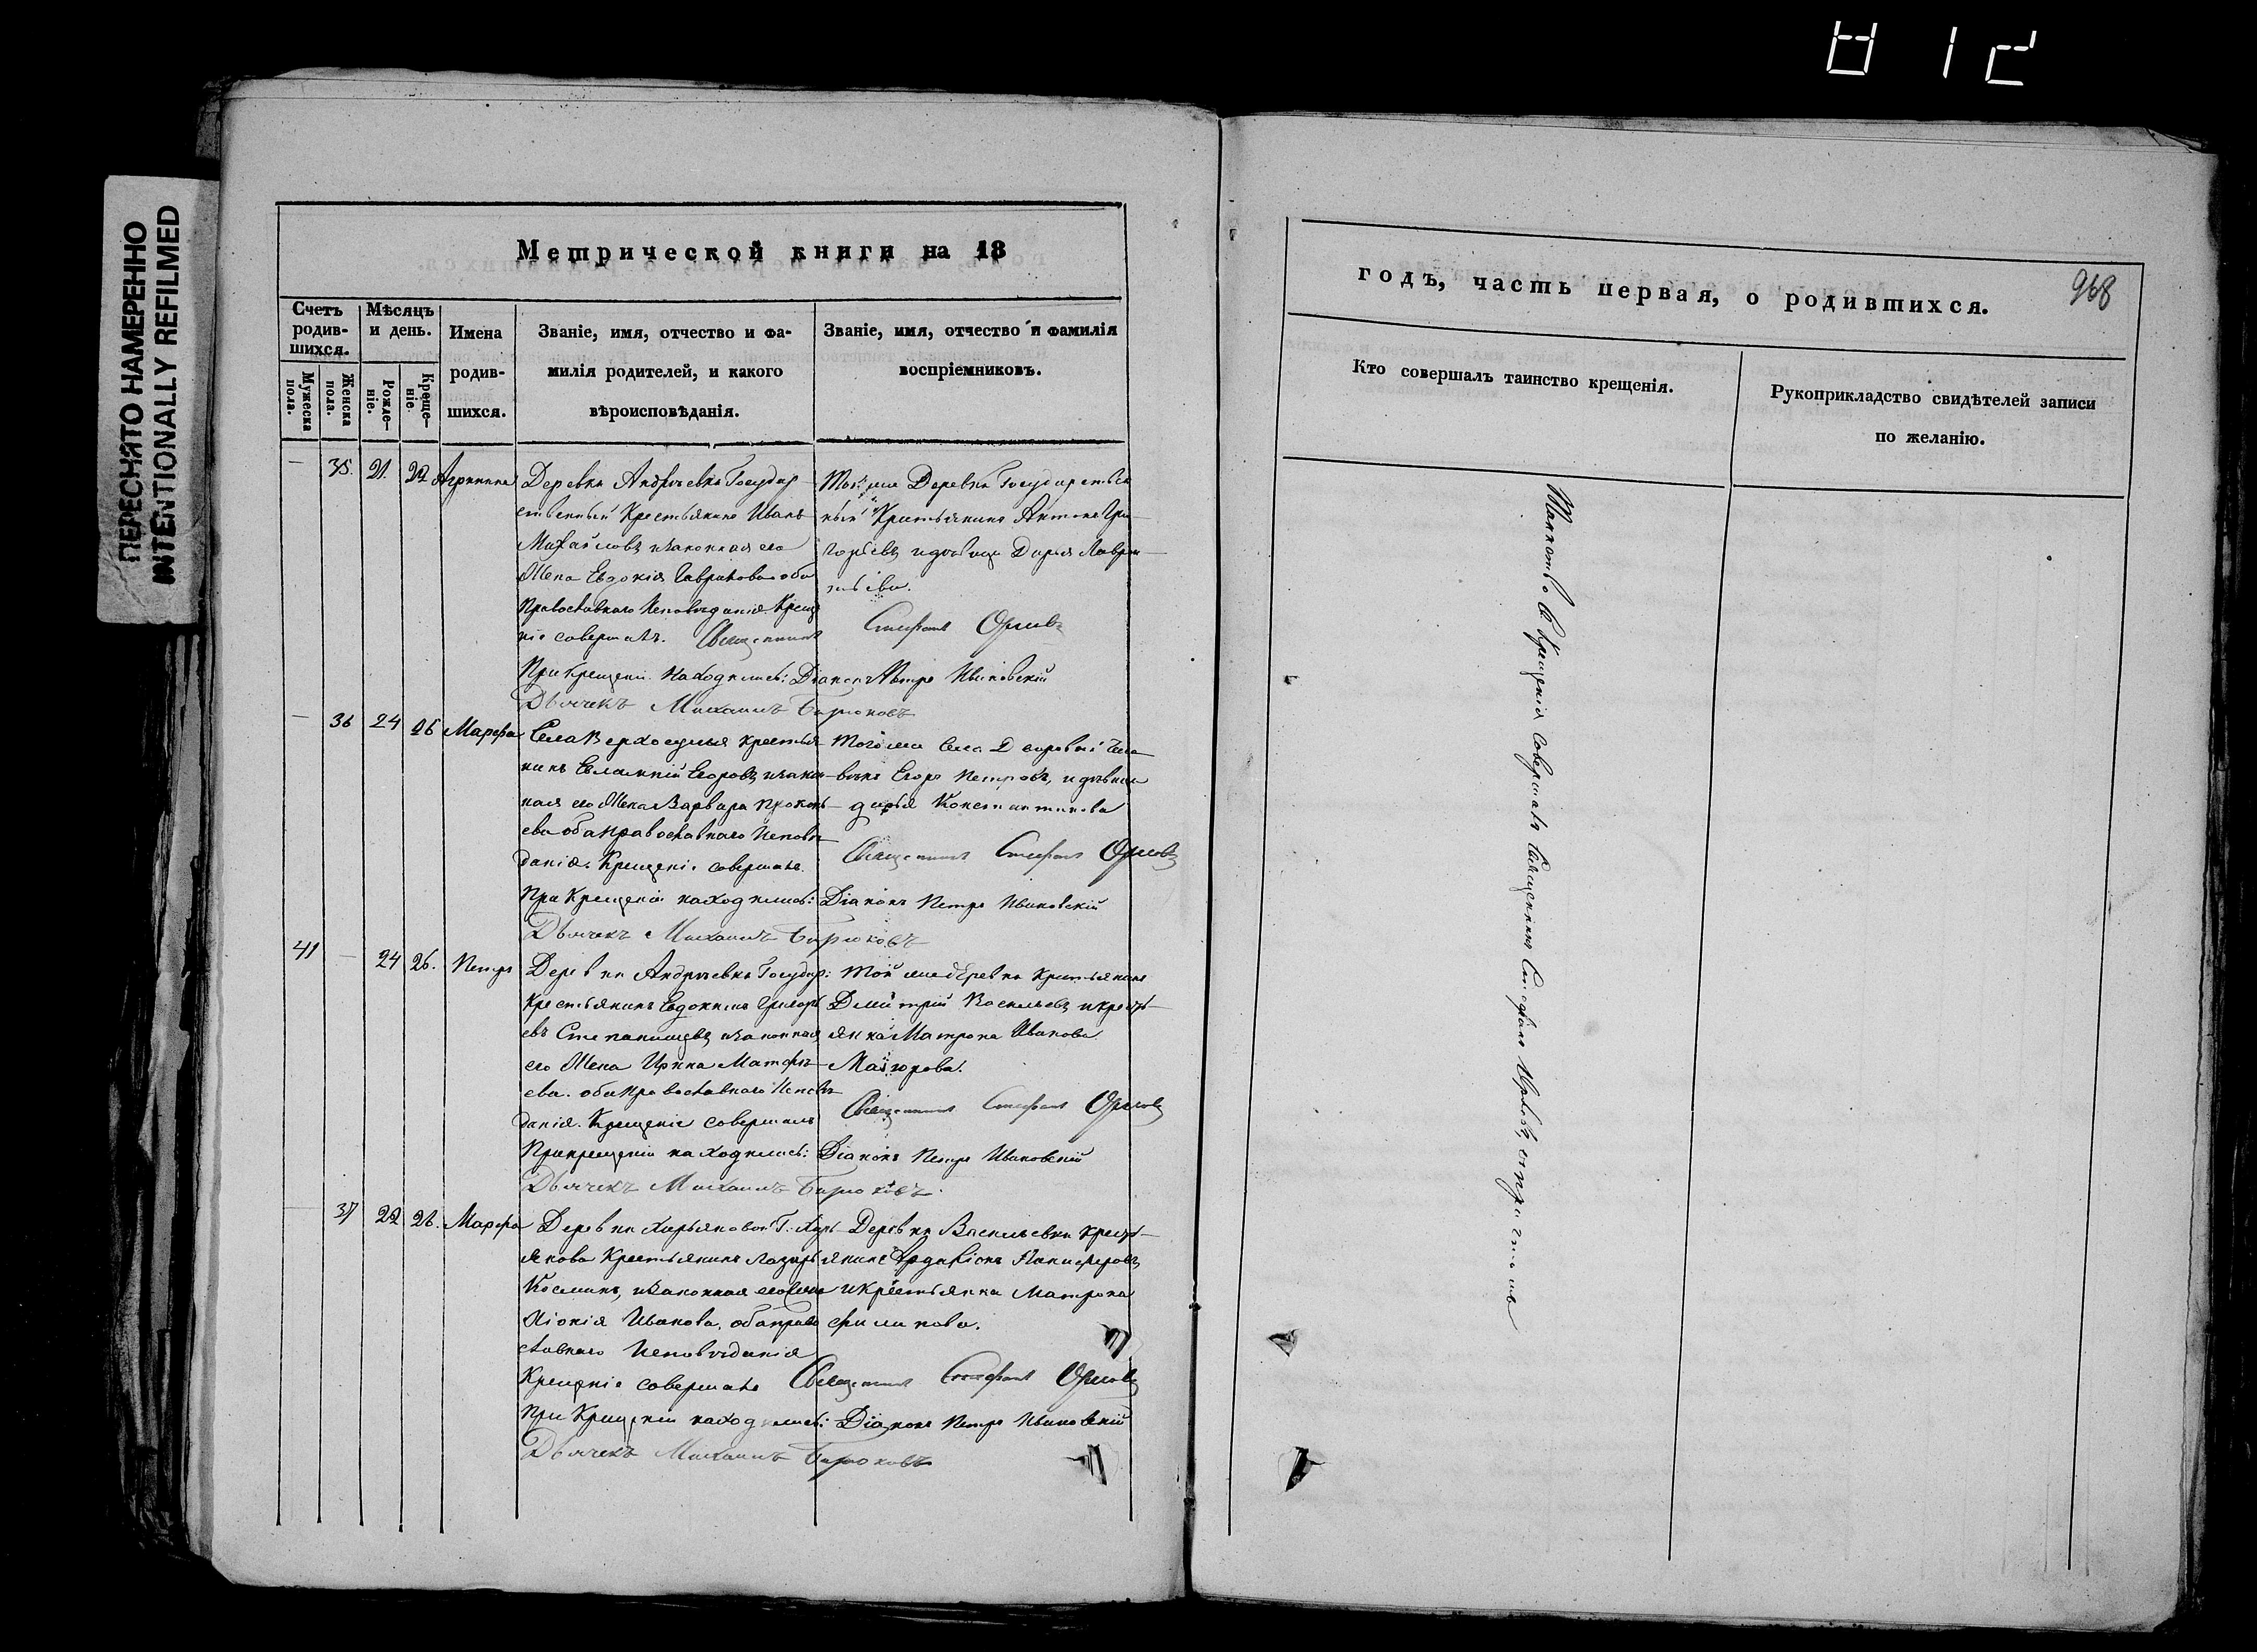 ПЕРЕСНЯТО НАМЕРЕННО
INTENTIONALLY REFILMED
Метрической книги на 18
Счетъ родившихся.
Мѣсяцъ и день.
Имена родившихся.
Званіе, имя, отчество и фамилія родителей, и какого вѣроисповѣданія.
Званіе, имя, отчество и фамилія воспріемниковъ.
Мужеска пола.
Женска пола.
Рожденіе.
Крещеніе.
— 35. 21. 22 Агрипина
Деревни Андреевки Государ
ственный Крестьянинъ Иванъ
Михайловъ изаконная его
Жена Евдокія Гаврилова оба
Православнаго Исповѣданія. Крещ
ніе совершалъ. Священникъ Стефанъ Орловъ
Той же Деревни Государствен
ный Крестьянинъ Антонъ Гри
горьевъ идѣвица Дарья Лаврен
тьева.
При крещеніи находились: Діаконъ Петръ Ивановскій
Дьячекъ Михаилъ Бирюковъ
— 36 24 26 Марфа
Села крестья
нинъ Егоровъ изакон
ная его Жена Варвара Прокопь
ева оба православнаго Исповѣ
данія. Крещеніе совершалъ.
Тогоже села Дворовый Чело
вѣкъ Егоръ Петровъ, идѣвица
дарья Константинова
Священникъ Стефанъ Орловъ
При Крещеніи находились: Діаконъ Петръ Ивановскій
Дьячекъ Михаилъ Бирюковъ
41 — 24 26. Петръ
Деревни Андреевки Государ:
Крестьянинъ Евдокимъ Григорь
евъ изаконная
его Жена Ирина Матфѣ
ева. оба православнаго Исповѣ
данія. Крещеніе совершалъ
Той жедеревни Крестьянинъ
Дмитрій Васильевъ икресть
янка Матрона Иванова
Маіорова.
Священникъ Стефанъ Орловъ
При крещеніи находились: Діаконъ Петръ Ивановскій
Дьячекъ Михаилъ Бирюковъ.
— 37 22 26. Марфа
Деревни
якова Крестьянинъ Лазарь
Косминъ, изаконная его жена
Хіонія Иванова. оба право
славнаго Исповѣданія
Деревни Васильевки крест
янинъ Панферовъ
икрестьянка Матрона
филипова.
Крещеніе совершалъ Священникъ Стефанъ Орловъ
При Крещеніи находились: Діаконъ Петръ Ивановскій
Дьячекъ Михаилъ Бирюковъ
годъ, часть первая, о родившихся.
968
Кто совершалъ таинство крещенія.
Рукоприкладство свидѣтелей записи по желанію.
Таинство Крещенія совершалъ Священникъ Стефанъ Орловъ, съ причтомъ